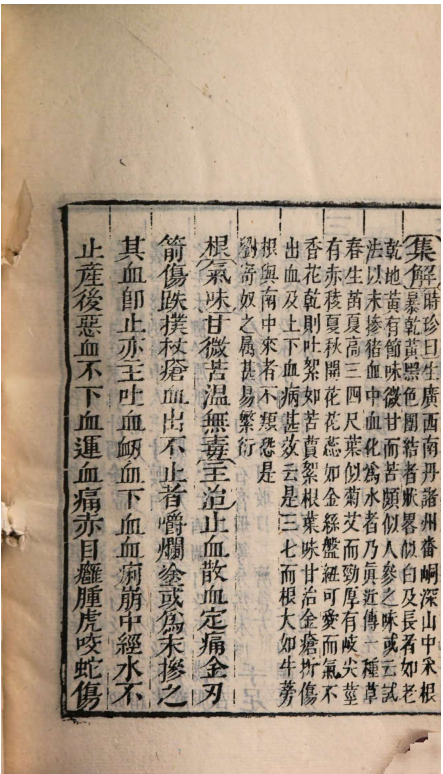 集解時珍曰生廣西南丹諸州番峒深山中采根
暴乾黃黑色團結者狀畧似白及長者如老
乾地黃有節味微甘而苦頗似人參之味或云試
法以末摻猪血中血化爲水者乃真近傳一種草
春生苗夏高三四尺葉似菊艾而勁厚有岐尖莖
有赤稜夏秋開花花蕊如金絲盤紐可愛而氣不
香花乾則吐絮如苦蕒絮根葉味甘治金瘡折傷
出血及上下血病甚效云是三七而根大如牛蒡
根與南中來者不類恐是
劉寄奴之屬甚易繁衍
根氣味甘微苦溫無毒主治止血散血定痛金刃
箭傷跌撲杖瘡血出不止者嚼爛塗或爲末摻之
其血卽止亦主吐血衄血下血血痢崩中經水不
止產後惡血不下血運血痛亦目癰腫虎咬蛇傷